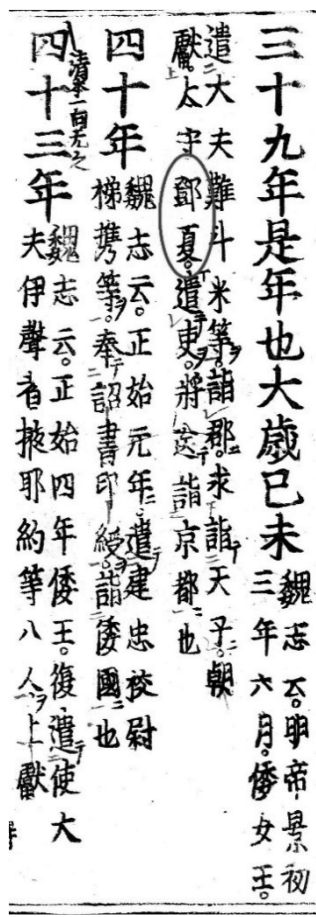 三十九年是年也大歳己未
魏志云。明帝景初
三年六月。倭女王。
遣大夫難斗米等。詣郡。求詣天子。朝
獻太守鄧夏。遣吏。將送詣京都也
四十年
魏志云。正始元年遣建忠校尉
梯携等。奉詔書印綬。詣倭國也
四十三年
魏志云。正始四年倭王。復遣使大
夫伊聲者掖耶約等八人上獻